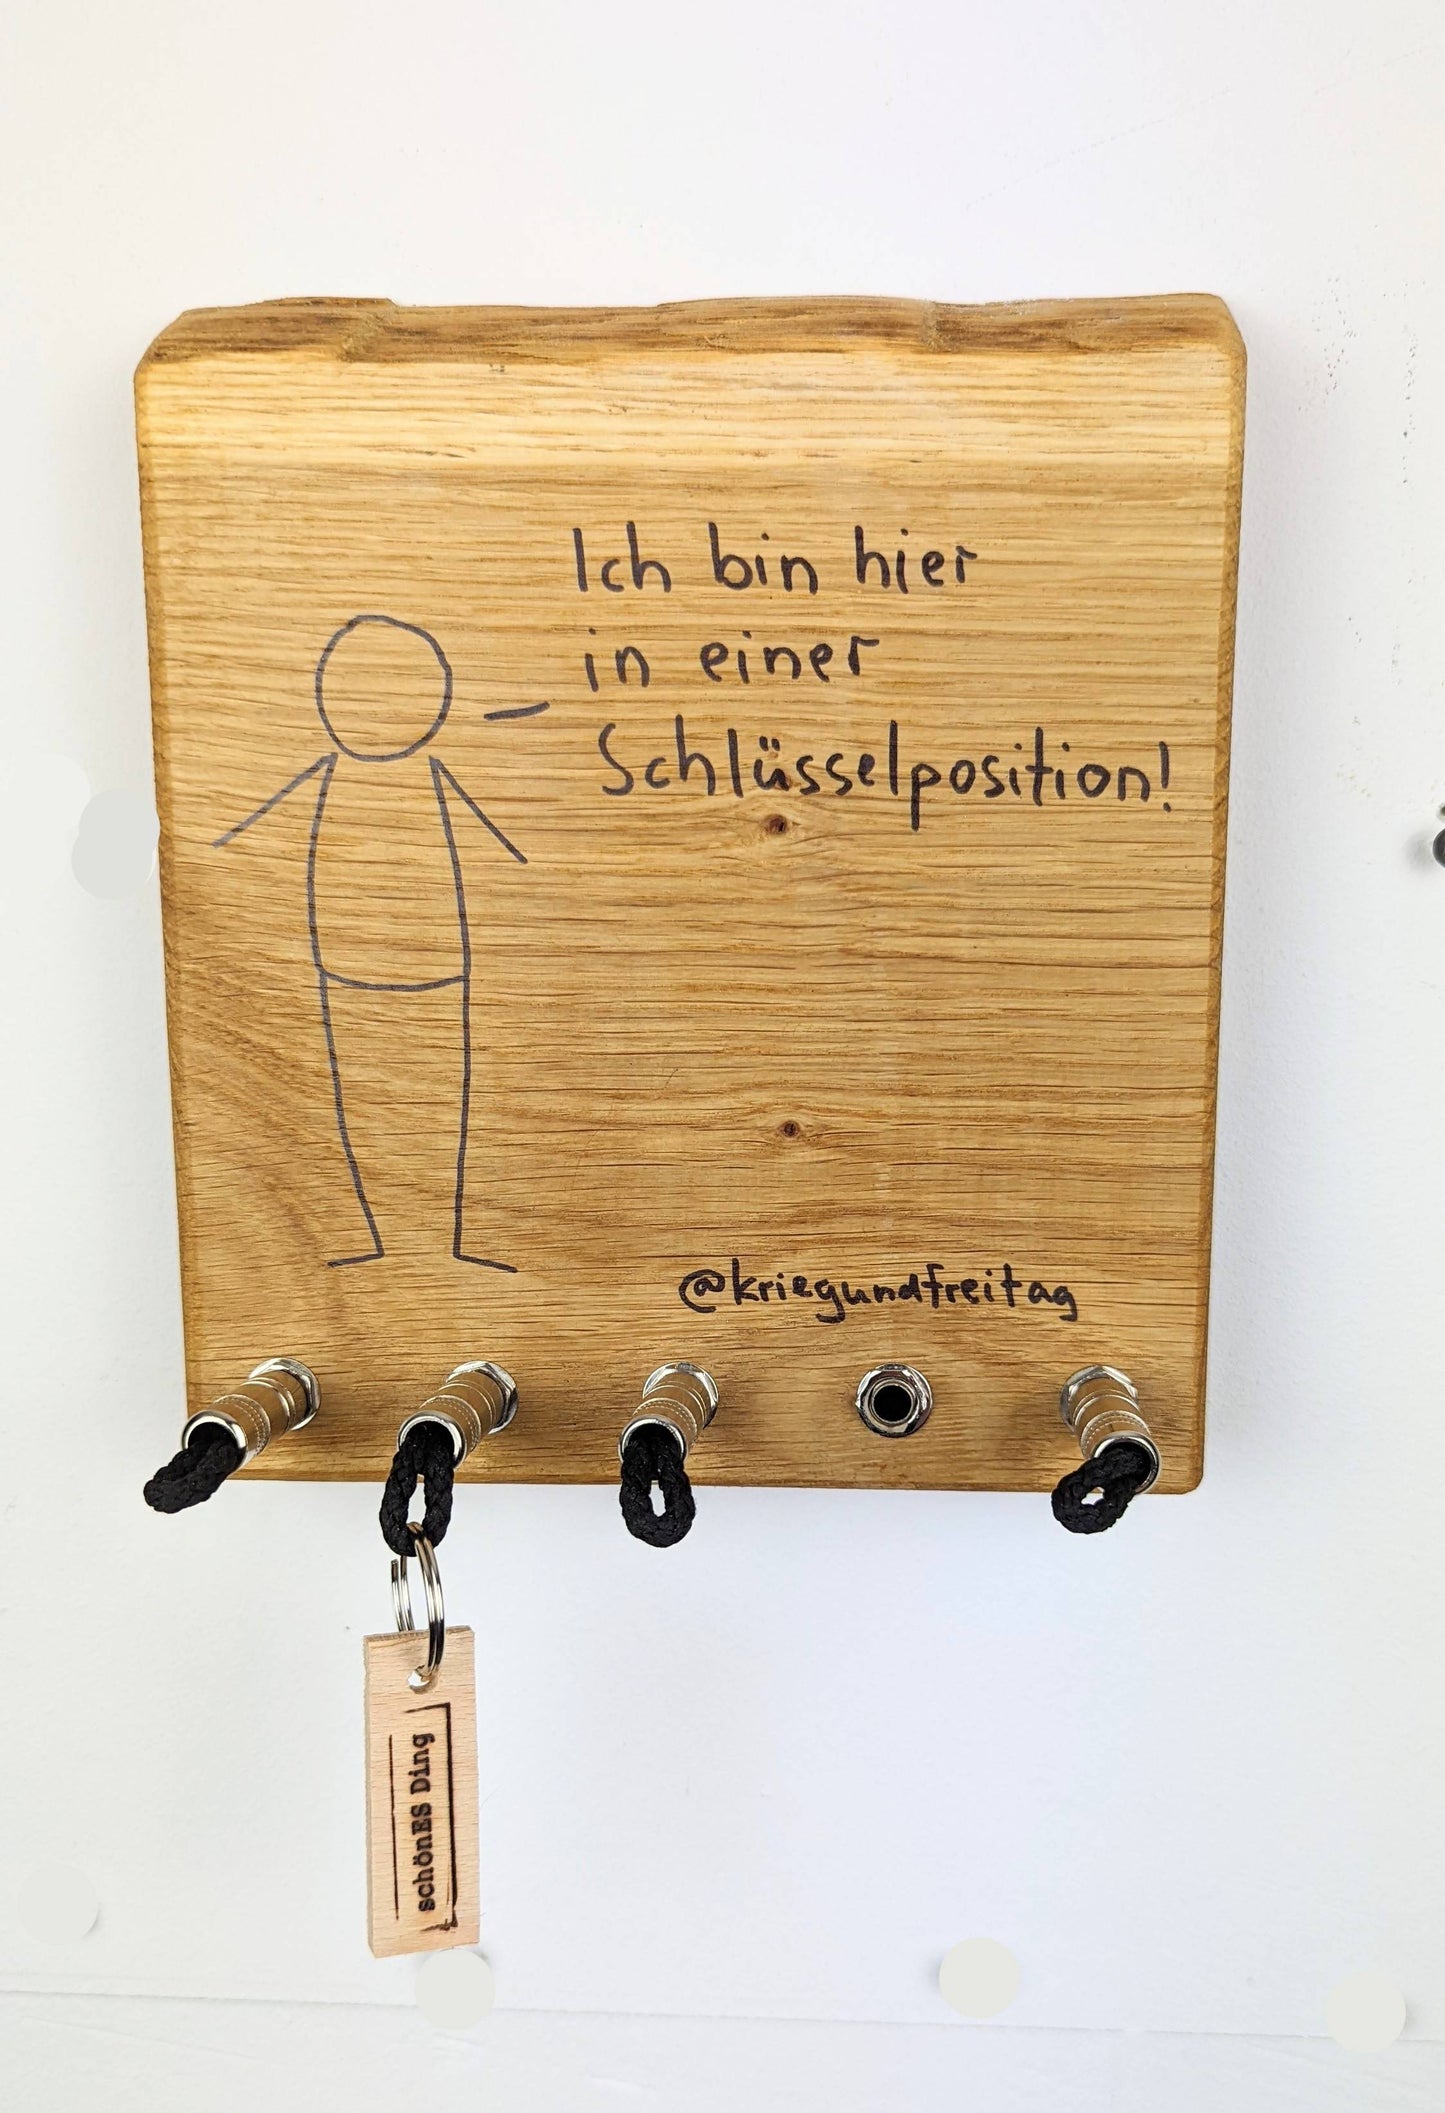 Ich bin hier
in einer
Schlüsselposition!
@kriegundfreitag
schönES Ding